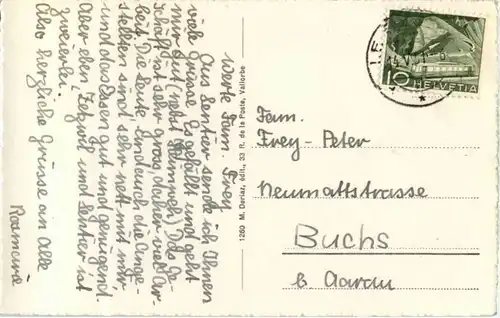 Werte Fam. Frey
Aus Sentier sende ich Ihnen
viele Grüsse. Es gefällt und geht
mir gut (nebst
Das Ge-
schäft ist sehr gross, daher viel Ar-
beit. Die Leute, und auch die Ange-
stellten sind sehr nett mit mir
und das Essen gut und genügend.
Aber eben, Zetzwil und Sentier ist
zweierlei.
Also herzliche Grüsse an Alle
1260 M. Deriaz, édit., 33 R. de la Poste, Vallorbe
10 HELVETIA
Fam.
Frey-Peter
Neumattstrasse
Buchs
b. Aarau